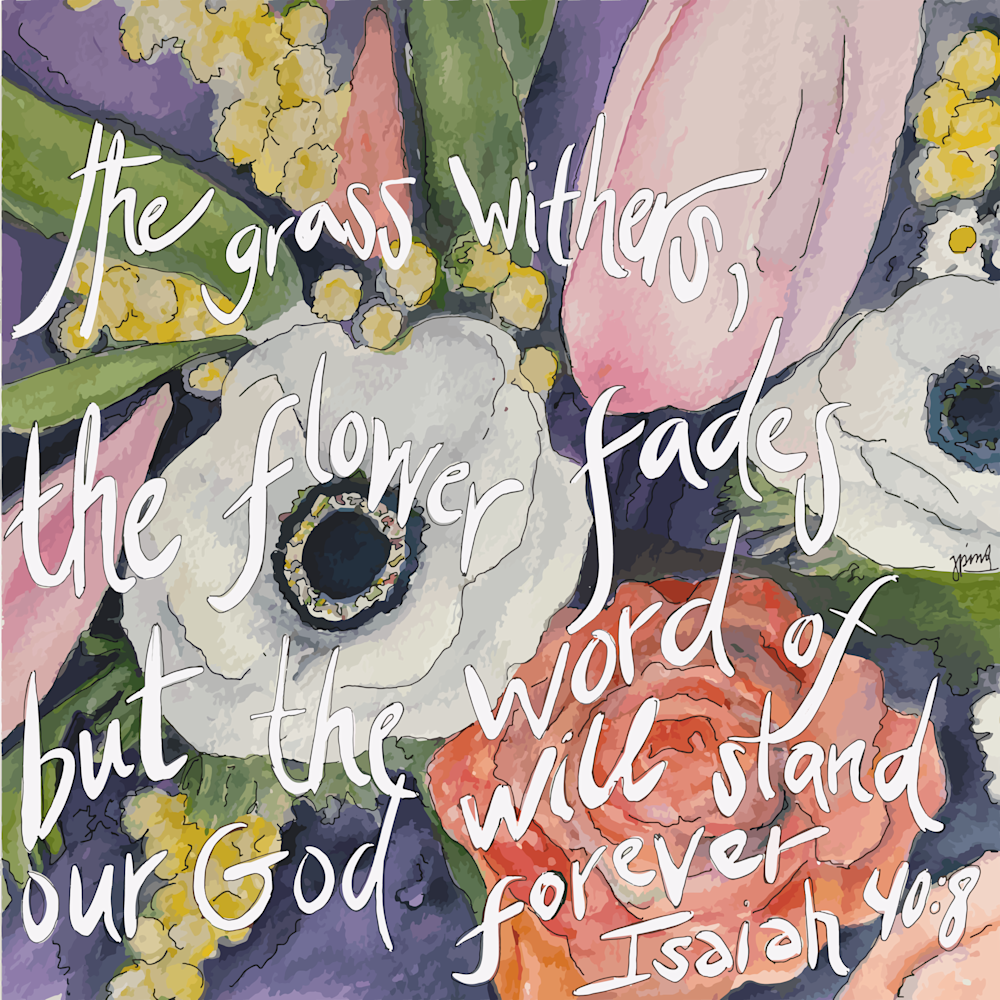 the grass withers,
the flower fades
but the word of
our God will stand
forever
Isaiah 40:8